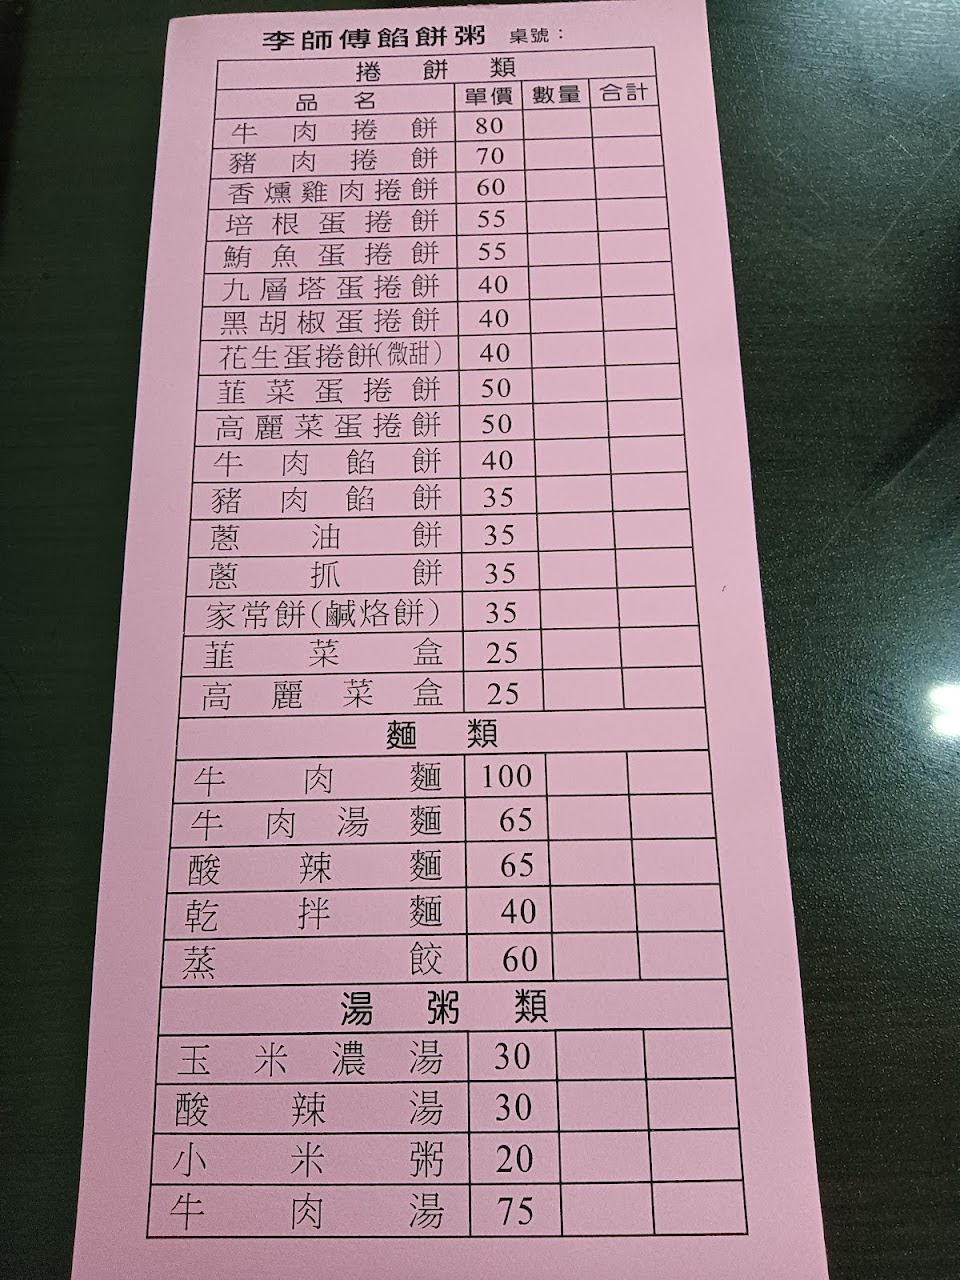 李師傅餡餅粥 桌號：
捲餅類
品名 單價 數量 合計
牛肉捲餅 80
豬肉捲餅 70
香燻雞肉捲餅 60
培根蛋捲餅 55
鮪魚蛋捲餅 55
九層塔蛋捲餅 40
黑胡椒蛋捲餅 40
花生蛋捲餅(微甜) 40
韮菜蛋捲餅 50
高麗菜蛋捲餅 50
牛肉餡餅 40
豬肉餡餅 35
蔥油餅 35
蔥抓餅 35
家常餅(鹹烙餅) 35
韮菜盒 25
高麗菜盒 25
麵類
牛肉麵 100
牛肉湯麵 65
酸辣麵 65
乾拌麵 40
蒸餃 60
湯粥類
玉米濃湯 30
酸辣湯 30
小米粥 20
牛肉湯 75